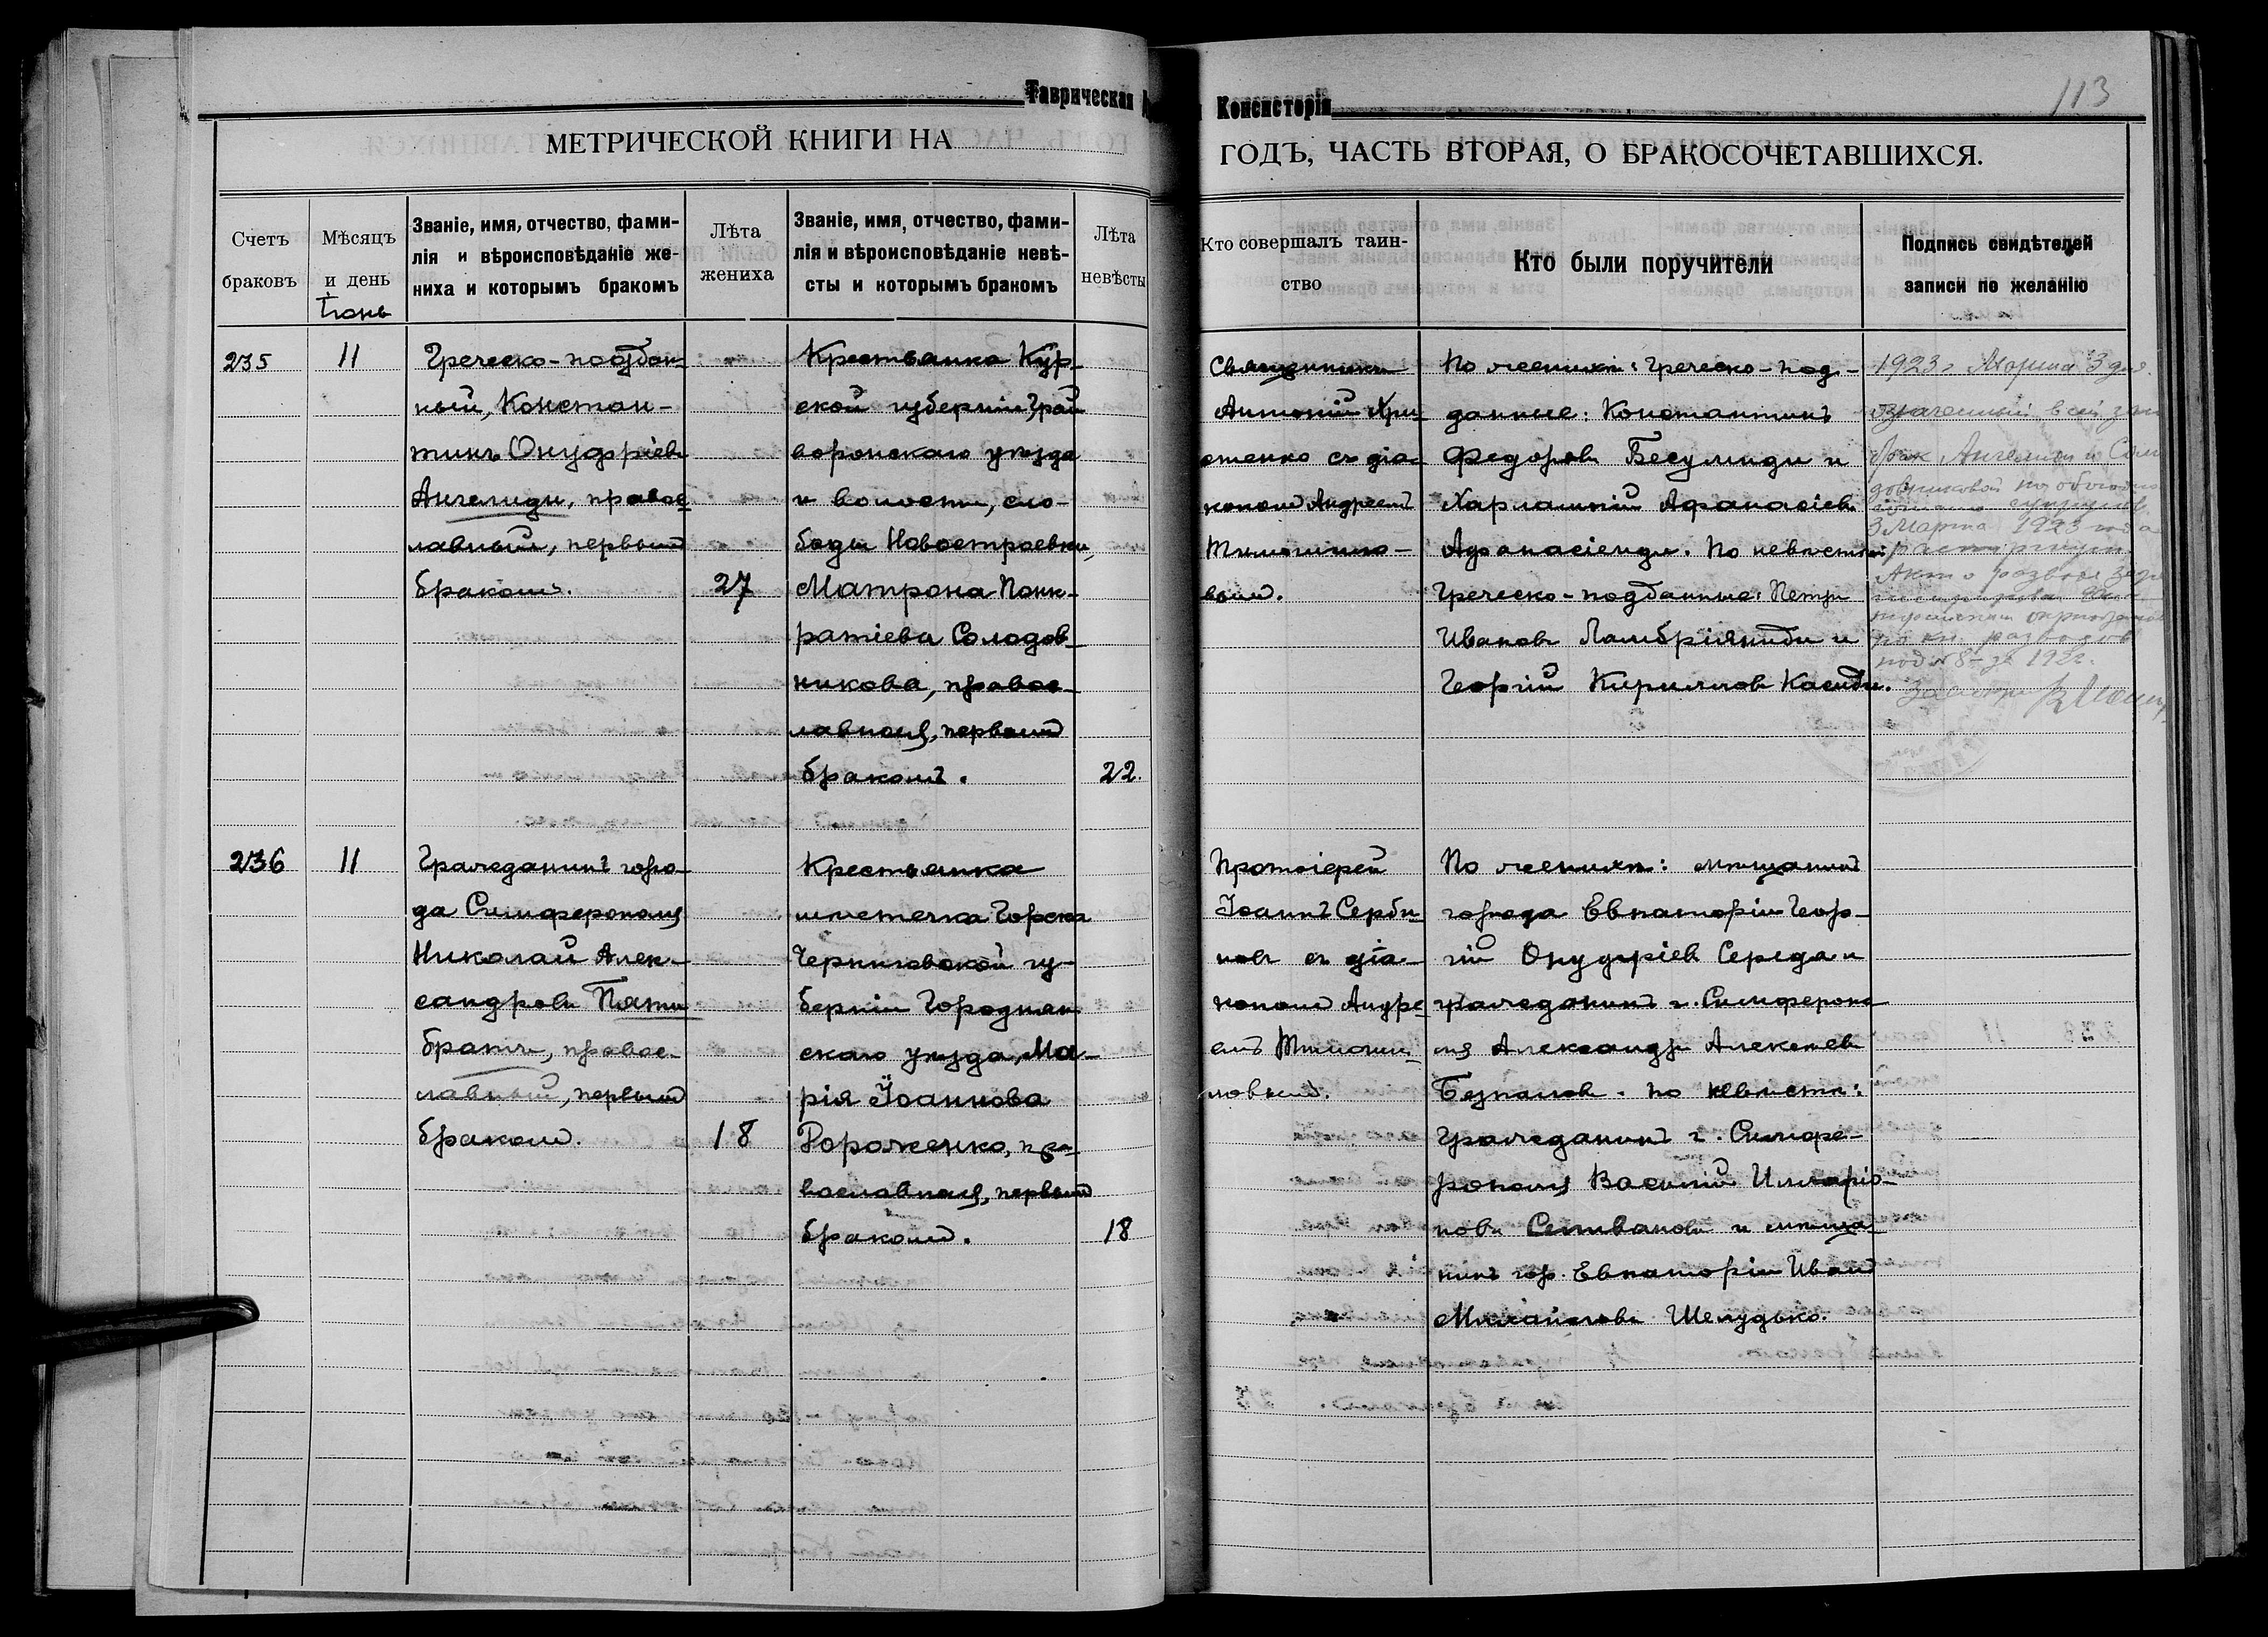 Таврическая
Консисторія
113
МЕТРИЧЕСКОЙ КНИГИ НА
ГОДЪ, ЧАСТЬ ВТОРАЯ, О БРАКОСОЧЕТАВШИХСЯ.
Счетъ
браковъ
Мѣсяцъ
и день
Іюнь
Званіе, имя, отчество, фами-
лія и вѣроисповѣданіе же-
ниха и которымъ бракомъ
Лѣта
жениха
Званіе, имя, отчество, фами-
лія и вѣроисповѣданіе невѣ-
сты и которымъ бракомъ
Лѣта
невѣсты
Кто совершалъ таин-
ство
Кто были поручители
Подпись свидѣтелей
записи по желанію
235
11
Греческо-поддан-
ный, Констан-
тинъ Онуфріевъ
Ангелиди, правос-
лавный, первымъ
бракомъ.
27
Крестьянка Кур-
ской губерніи, Грай
воронскаго уѣзда
и волости, сло-
боды Новостроевки,
Матрона Панк-
ратіева Солодов-
никова, правос-
лавная, первымъ
бракомъ.
22.
Священникъ
Антоній Хри-
стенко съ діа-
кономъ Андреемъ
вымъ.
По женихѣ: Греческо-под-
данные: Константинъ
Федоровъ Бесулиди и
Харлампій Афанасіевъ
Афанасіенди. По невѣстѣ:
Греческо-подданные: Петръ
Ивановъ Ламбріяниди и
Георгій Кирилловъ Касиди.
1923 г Марта 3 дня.
означенный в сей
брак Ангелиди и Соло
довниковой по обоюдно
3 Марта 1923 года
расторгнут.
Акт о разводе
по кн. разводов
под № 8 – за 192
236
11
Гражданинъ горо-
да Симферополя
Николай Алек-
сандровъ Пяти
братъ, правос-
лавный, первымъ
бракомъ.
18
Крестьянка
мѣстечка Горска
Черниговской гу-
берніи Городнян
скаго уѣзда, Ма-
рія Іоаннова
Ророженко, пра-
вославная, первымъ
бракомъ.
18
Протоіерей
Іоаннъ Серби-
новъ съ діа-
кономъ Андре-
емъ
ловымъ.
По женихѣ: мѣщанинъ
города Евпаторіи Геор-
гій Онуфріевъ Середа и
гражданинъ г. Симферопо
ля Александръ Алексѣевъ
Безпаловъ. по невѣстѣ:
Гражданинъ г. Симфе-
рополя Василій Илларіо-
новъ Селивановъ и мѣща-
нинъ гор. Евпаторіи Иванъ
Михайловъ Шелудько.